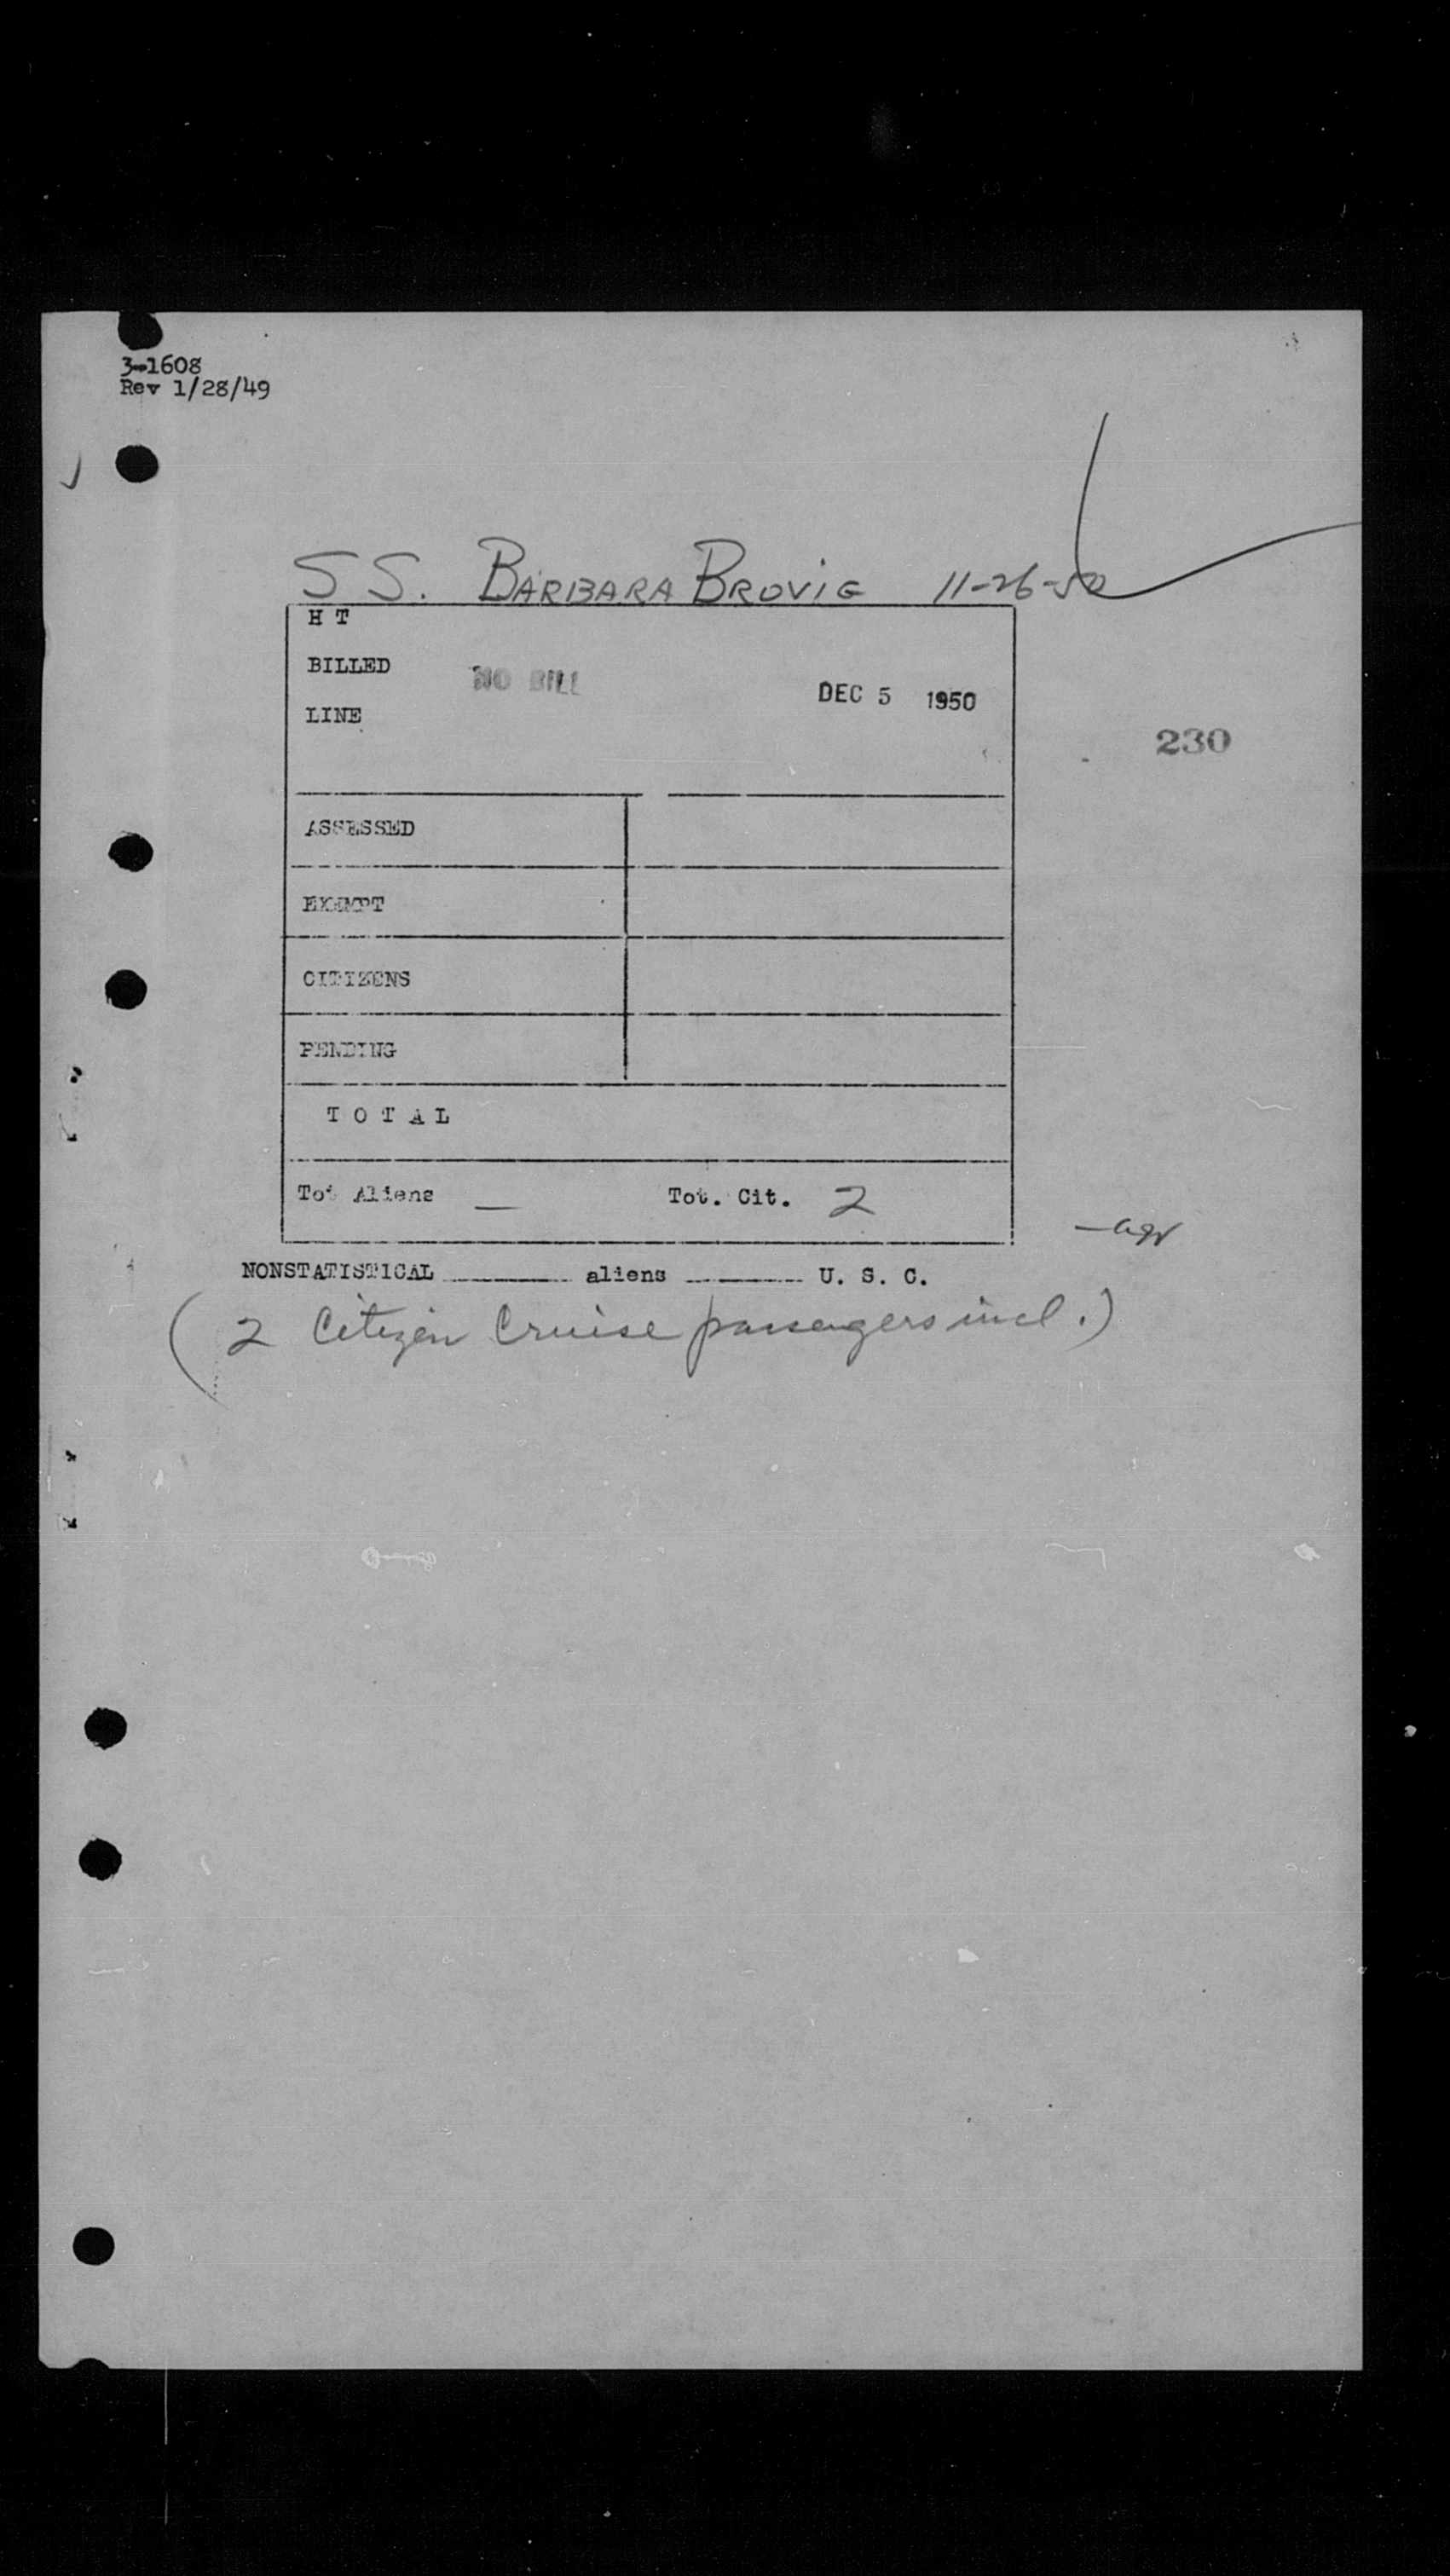 3-1608
Rev 1/28/49
SS. BARBARA BROVIG 11-26-50
H T
BILLED NO BILL DEC 5 1950
LINE
230
ASSESSED
EXEMPT
CITIZENS
PENDING
T O T A L
Tot Aliens — Tot. Cit. 2
NONSTATISTICAL ________ aliens ________ U. S. C.
(2 Citizen Cruise passengers incl.)